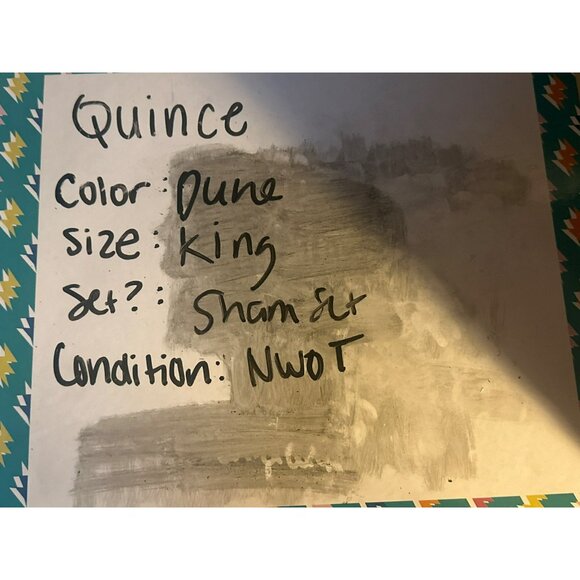 Quince
Color: Dune
Size: King
Set?: Sham Set
Condition: NWOT